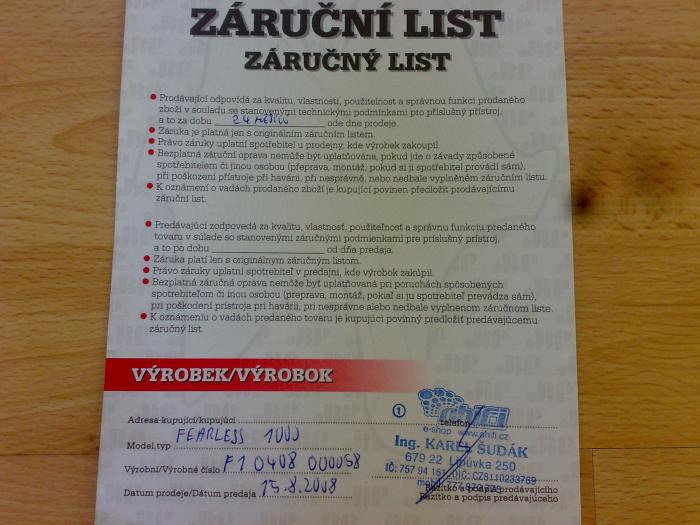 ZÁRUČNÍ LIST
ZÁRUČNÝ LIST
● Prodávající odpovídá za kvalitu, vlastnosti, použitelnost a správnou funkci prodaného
zboží v souladu se stanovenými technickými podmínkami pro příslušný přístroj,
a to za dobu 24 měsíců ode dne prodeje.
● Záruka je platná jen s originálním záručním listem.
● Právo záruky uplatní spotřebitel u prodejny, kde výrobek zakoupil.
● Bezplatná záruční oprava nemůže být uplatňována, pokud jde o závady způsobené
spotřebitelem či jinou osobou (přeprava, montáž, pokud si ji spotřebitel provádí sám),
při poškození přístroje při havárii, při nesprávně, nebo nedbale vyplněném záručním listu.
● K oznámení o vadách prodaného zboží je kupující povinen předložit prodávajícímu
záruční list.
● Predávajúci zodpovedá za kvalitu, vlastnosť, použiteľnosť a správnu funkciu predaného
tovaru v súlade so stanovenými záručnými podmienkami pre príslušný prístroj,
a to po dobu ____________ od dňa predaja.
● Záruka platí len s originálnym záručným listom.
● Právo záruky uplatní spotrebiteľ v predajni, kde výrobek zakúpil.
● Bezplatná záručná oprava nemôže byť uplatňovaná pri poruchách spôsobených
spotrebiteľom či inou osobou (preprava, montáž, pokiaľ si ju spotrebiteľ prevádza sám),
pri poškodení prístroja pri havárii, pri nesprávne alebo nedbale vyplnenom záručnom liste.
● K oznámeniu o vadách predaného tovaru je kupujúci povinný predložiť predávajúcemu
záručný list.
VÝROBEK/VÝROBOK
Adresa-kupující/kupujúci
telefon
Model,typ FEARLESS 1000
Výrobní/Výrobné číslo F1 0408 000058
Datum prodeje/Dátum predaja 15.8.2008
①
ahifi
e-shop www.ahifi.cz
Ing. KAREL ŠUDÁK
679 22 Lipůvka 250
IČ: 757 94 161, DIČ: CZ8110233769
Razítko a podpis prodávajícího
Razítko a podpis predávajúceho